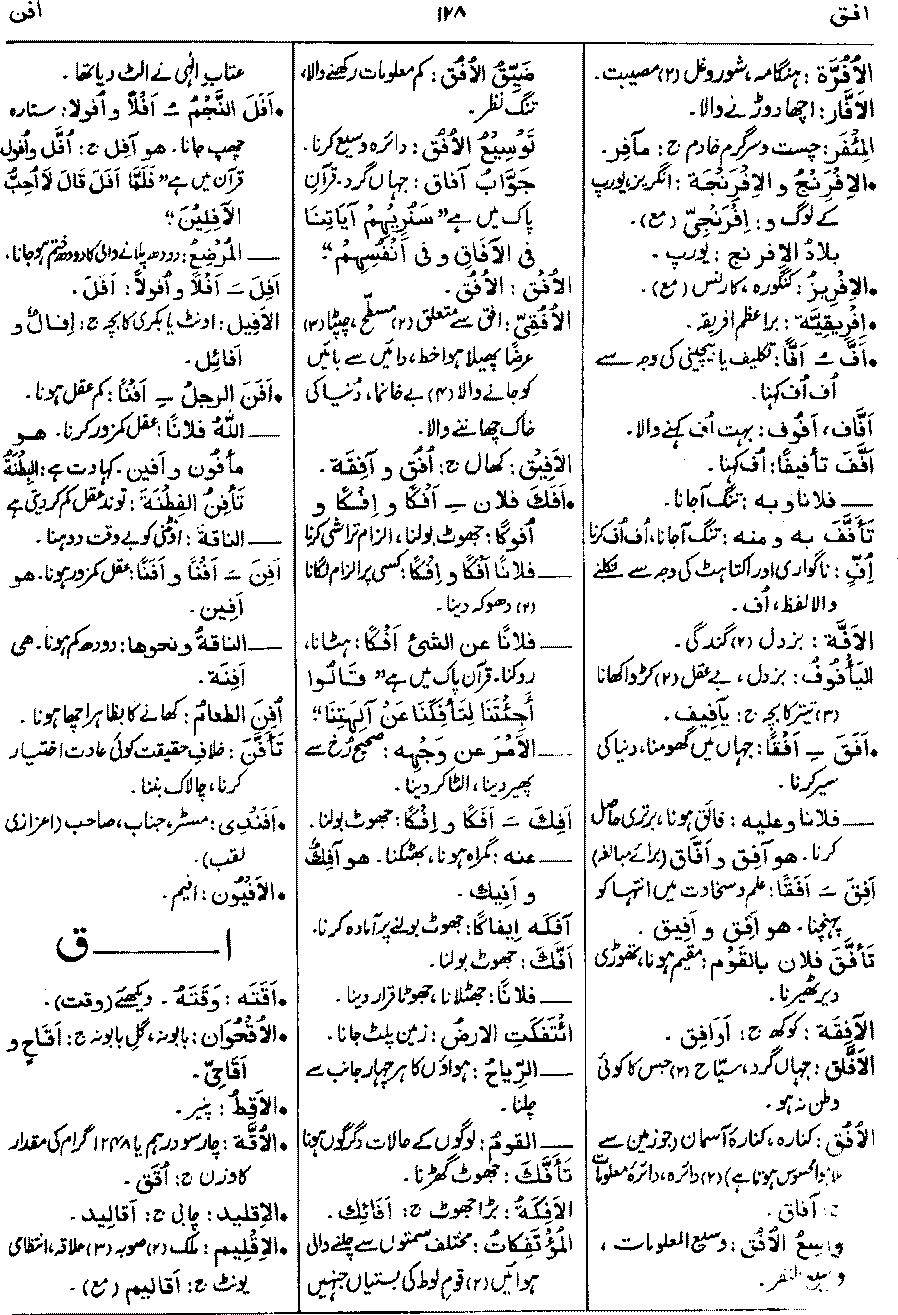 افق ۱۲۸ افن
الأُفُرَّة : ہنگامہ، شور و غل (۲) مصیبت۔
الأَفَّار: اچھا دوڑنے والا۔
المِئْفَر: چست و سرگرم خادم ج: مآفِر۔
•الإفْرَنْجُ و الإفْرِنْجَة : انگریز، یورپ
کے لوگ و : إفْرَنْجِیّ (مع)۔
بلادُ الإفرنج : یورپ۔
•الإفْرِیزُ : کنگورہ، کارنس (مع)۔
•إفْرِیقِیَّة : براعظم افریقہ۔
•أَفَّ ـُ أَفًّا: تکلیف یا بیچینی کی وجہ سے
اُف اُف کہنا۔
أَفَّاف، أَفُوف: بہت اُف کہنے والا۔
أَفَّفَ تأفیفًا: اُف کہنا۔
— فلانا و به : تنگ آجانا۔
تَأَفَّفَ به و منه : تنگ آجانا، اُف اُف کرنا
أُفٍّ : ناگواری اور اکتاہٹ کی وجہ سے نکلنے
والا لفظ، اُف۔
الأفَّة : بزدل (۲) گندگی۔
الیَأْفُوفُ: بزدل، بے عقل (۲) کڑوا کھانا
(۳) تیتر کا بچہ ج: یآفِیف۔
•أفَقَ ـِ أَفْقًا: جہاں میں گھومنا، دنیا کی
سیر کرنا۔
— فلانا و علیه : فائق ہونا، برتری حاصل
کرنا۔ هو آفِق و أفَّاق (برائے مبالغہ)
أفِقَ ـَ أَفَقًا: علم و سخاوت میں انتہا کو
پہنچنا۔ هو أفِق و أفِیق۔
تَأفَّقَ فلان بالقَوْم: مقیم ہونا، تھوڑی
دیر ٹھیرنا۔
الآفِقَة : کوکھ ج: أوَافِق۔
الأَفَّاق: جہاں گرد، سیّاح (۲) جس کا کوئی
وطن نہ ہو۔
الأُفُق : کنارہ، کنارۂ آسمان (جو زمین سے
ملا ہوا محسوس ہوتا ہے) (۲) دائرہ، دائرۂ معلومات
ج: آفاق۔
واسِعُ الأُفُق : وسیع المعلومات ،
وسیع النظر۔
ضَیِّقُ الأُفُق : کم معلومات رکھنے والا،
تنگ نظر۔
تَوْسِیعُ الأُفُق : دائرہ وسیع کرنا۔
جَوَّابُ آفاق : جہاں گرد۔ قرآنِ
پاک میں ہے "سَنُرِیهِمْ آیَاتِنَا
فی الآفَاقِ و فی أنْفُسِهِمْ"۔
الأُفْق : الأُفُق۔
الأُفُقِیّ : افق سے متعلق (۲) مسطّح ، چپٹا (۳)
عرضًا پھیلا ہوا خط، دائیں سے بائیں
کو جانے والا (۴) بے خانماں، دُنیا کی
خاک چھاننے والا۔
الأَفِیْق : کھال ج: أُفُق و آفِقَة۔
•أفَكَ فلان ـِ أَفْكًا و إفْكًا و
أُفُوكًا: جھوٹ بولنا، الزام تراشی کرنا
— فلانًا أفْكًا و إفْكًا: کسی پر الزام لگانا
(۲) دھوکہ دینا۔
— فلانًا عن الشئ أفْكًا: ہٹانا،
روکنا۔ قرآن پاک میں ہے "قَالُوا
أجِئْتَنَا لِتَأْفِكَنَا عَنْ آلِهَتِنَا"۔
— الأمْرَ عن وَجْهِه : صحیح رُخ سے
پھیر دینا، الٹا کر دینا۔
أفِكَ ـَ أفَكًا و إفْكًا : جھوٹ بولنا۔
— عنه : گمراہ ہونا، بھٹکنا۔ هو آفِكٌ
و أفِیك۔
آفَكَه إیفاكًا: جھوٹ بولنے پر آمادہ کرنا۔
أَفَّكَ : جھوٹ بولنا۔
— فلانًا : جھٹلانا ، جھوٹا قرار دینا۔
ائْتَفَكَتِ الارضُ : زمین پلٹ جانا۔
— الرِّیاحُ: ہواؤں کا ہر چہار جانب سے
چلنا۔
— القومُ : لوگوں کے حالات دگرگوں ہونا
تَأَفَّكَ : جھوٹ گھڑنا۔
الأَفِكَة : بڑا جھوٹ ج: أفَائِك۔
المُؤْتَفِكاتُ : مختلف سمتوں سے چلنے والی
ہوائیں (۲) قومِ لوط کی بستیاں جنہیں
عتابِ الٰہی نے الٹ دیا تھا۔
•أفَلَ النَّجْمُ ـُ أَفْلًا و أُفولا: ستارہ
چھپ جانا۔ هو آفِل ج: أُفَّل وأُفول
قرآن میں ہے "فَلَمَّا أفَلَ قَالَ لَا أُحِبُّ
الآفِلِیْنَ"۔
— المُرْضِعُ : دودھ پلانے والی کا دودھ ختم ہو جانا۔
أفِلَ ـَ أَفْلًا و أُفولًا: أفَلَ۔
الأَفِیل: اونٹ یا بکری کا بچہ ج: إفَالٌ و
أفائِل۔
•أفَنَ الرجلُ ـِ أفْنًا: کم عقل ہونا۔
— اللهُ فلانًا : عقل کمزور کرنا۔ هو
مأفُون و أفین۔ کہاوت ہے: البِطْنَةُ
تَأفِنُ الفِطْنَةَ : توند عقل کم کر دیتی ہے
— الناقةَ : اونٹنی کو بے وقت دوہنا۔
أفِنَ ـَ أفْنًا و أفَنًا : عقل کمزور ہونا۔ هو
أفِین۔
— الناقةُ و نحوها: دودھ کم ہونا۔ هی
أفِنَة۔
أُفِنَ الطعامُ: کھانے کا بظاہر اچھا ہونا۔
تَأَفَّنَ : خلافِ حقیقت کوئی عادت اختیار
کرنا، چالاک بننا۔
•أفَنْدِی : مسٹر، جناب، صاحب (اعزازی
لقب)۔
•الأفْیُون : افیم۔
ا — ق
•أقَّتَه : وَقَّتَهُ۔ دیکھئے (وقت)۔
•الأُقْحُوَان : بابونہ، گل بابونہ ج: أقَاحٍ و
أقَاحِیّ۔
•الأَقِطُ : پنیر۔
•الأُقَّة : چار سو درہم یا ۱۲۴۸ گرام کی مقدار
کا وزن ج: أُقَق۔
•الإقلید : چابی ج: أقالِید۔
•الإقْلِیم : ملک (۲) صوبہ (۳) علاقہ، انتظامی
یونٹ ج: أقالیم (مع)۔